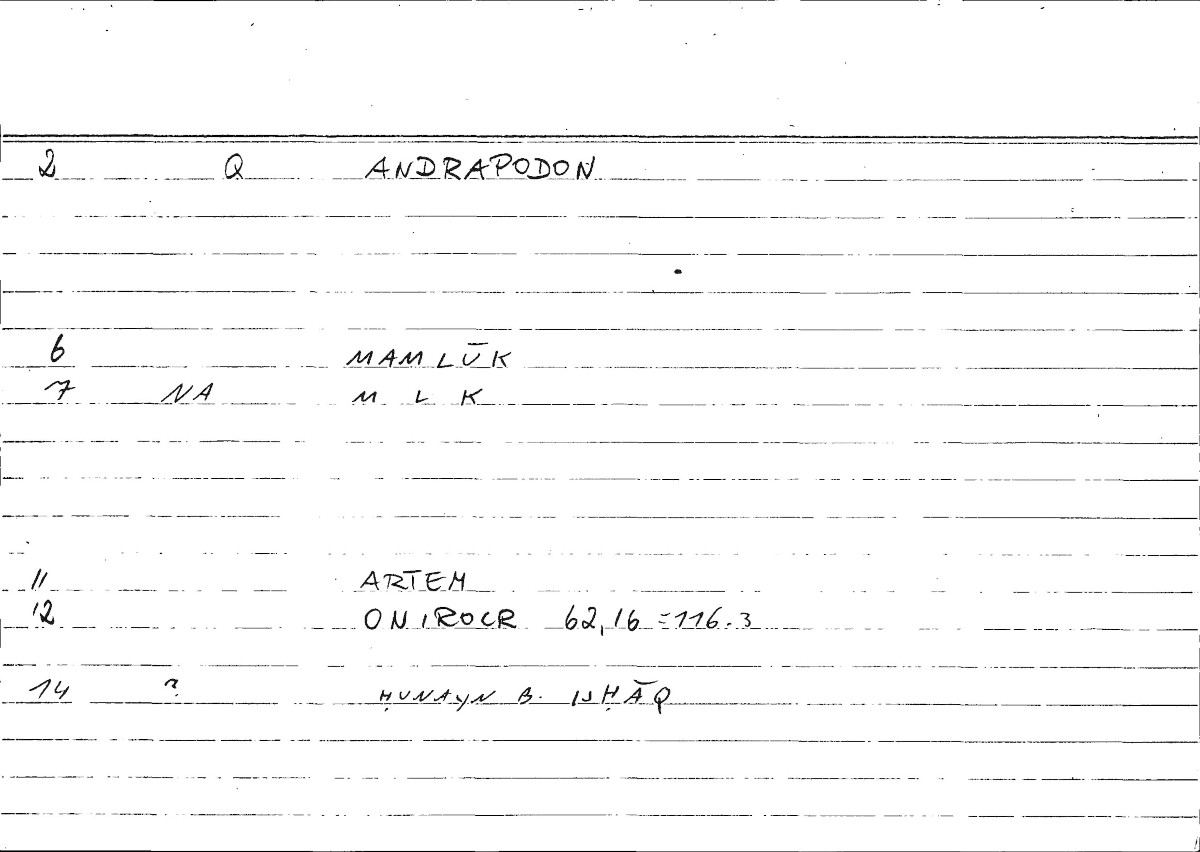 2 Q ANDRAPODON
6 MAMLŪK
7 NA M L K
11 ARTEM
12 ONIROCR 62,16 = 116.3
14 ? ḤUNAYN B. ISḤĀQ